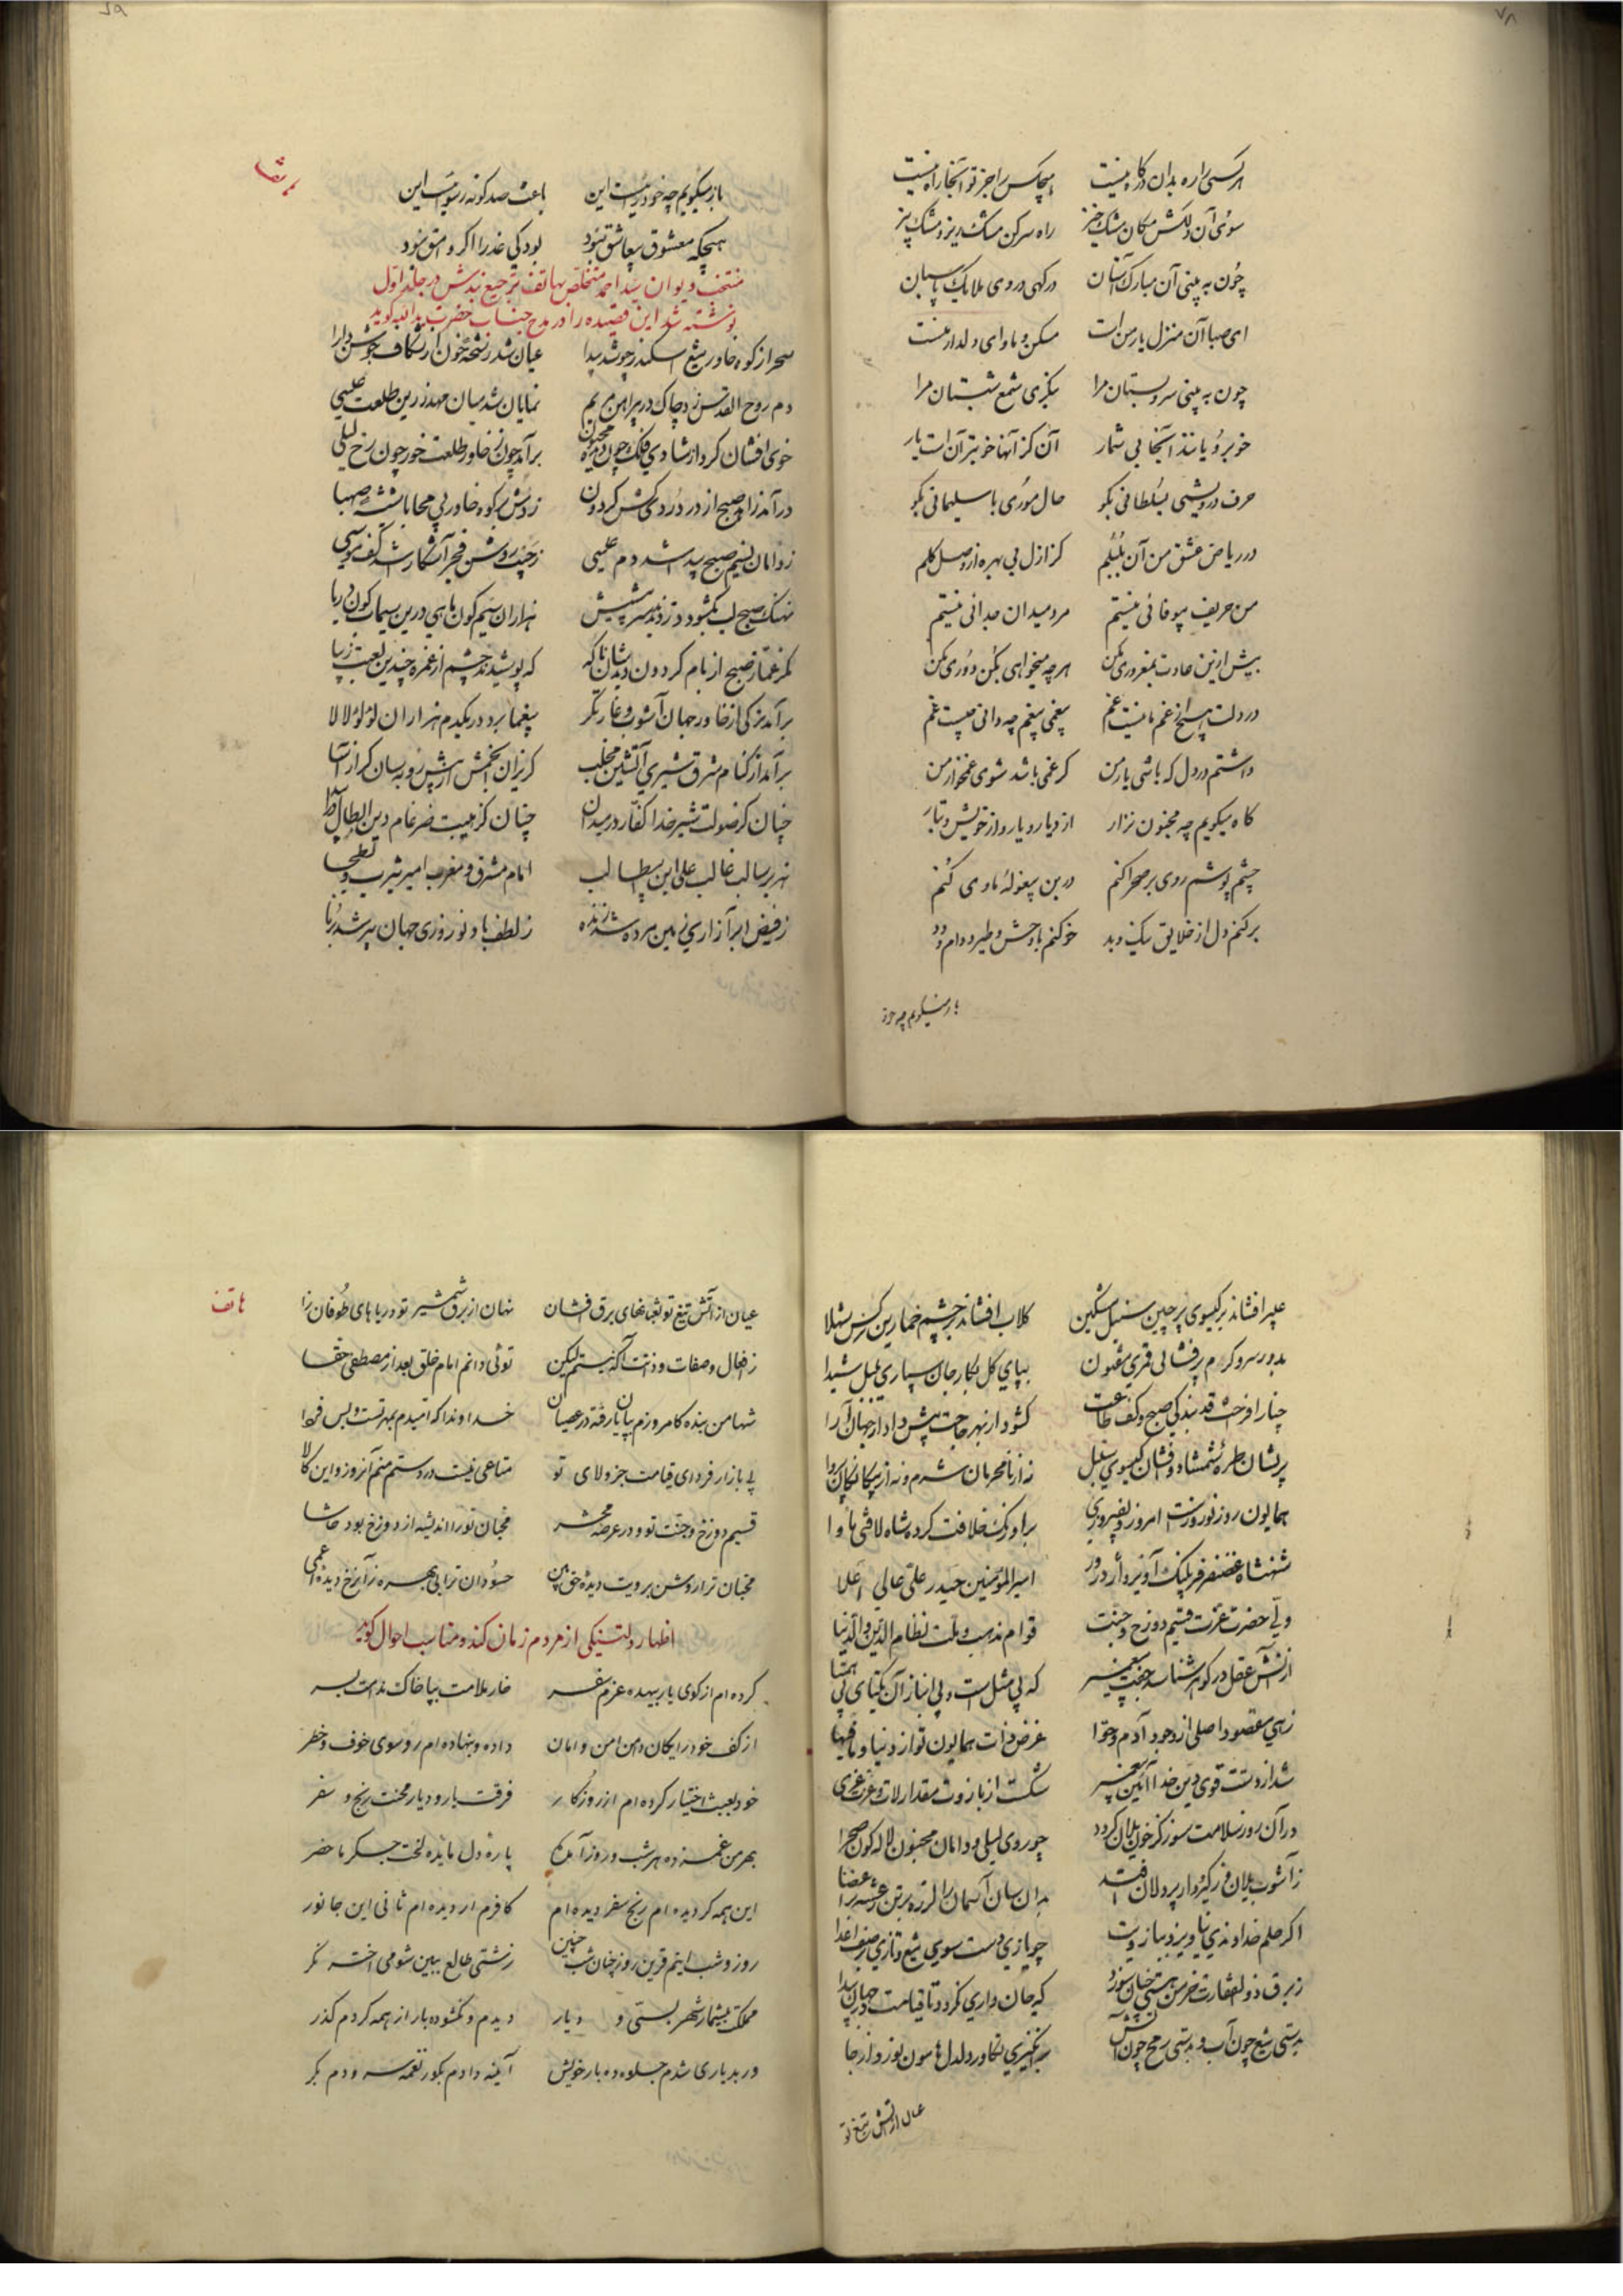 ۷۸
هر کسی را ره بدان درگاه نیست هیچکس را جز تو آنجا راه نیست
سوی آن دلکش مکان مشک‌خیز راه سر کن مشک ریز و مشک بیز
چون به بینی آن مبارک آستان درگهی در وی ملایک پاسبان
ای صبا آن منزل یار من است مسکن و ماوای دلدار منست
چون به بینی سرو بستان مرا بنگری شمع شبستان مرا
خوبرو یابند آنجا بی شمار آن کز آنها خوبتر آن است یار
حرف درویشی بسلطانی بگو حال موری با سلیمانی بگو
در ریاض عشق من آن بلبلم کز ازل بی بهره از وصل گلم
من حریف بیوفائی نیستم مرد میدان جدائی نیستم
بیش ازین عادت بمغروری مکن هر چه میخواهی بکن دوری مکن
در دلت هیچ از غم ما نیست غم بیغمی بیغم چه دانی چیست غم
داشتم در دل که باشی یار من گر غمی باشد شوی غمخوار من
گاه میگویم چه مجنون نزار از دیار و یار و از خویش و تبار
چشم پوشم روی بر صحرا کنم در بن بیغوله ماوی کنم
برکنم دل از خلایق نیک و بد خو کنم با وحش و طیر و دام و دد
باز میگویم چه خود
باز میگویم چه خود رایست این باعث صد گونه رسوائیست این
هیچگه معشوق بیعاشق نبود بود کی عذرا اگر وامق نبود
منتخب دیوان سید احمد متخلص بهاتف ترجیع بندش در جلد اول
نوشته شد این قصیده را در مدح جناب حضرت ید الله گوید
سحر از کوه خاور تیغ اسکندر چو شد پیدا عیان شد رشحه خون از شکاف جوشن دارا
دم روح القدس زد چاک در پیراهن مریم نمایان شد میان مهد زرین طلعت عیسی
خوی افشان کرد از شادی فلک چون دیده مجنون برآمد چون ز خاور طلعت خور چون رخ لیلی
درآمد زاهد صبح از در دردی کش گردون زدش بر کوه خاور بی محابا شیشه صهبا
ز دامان نسیم صبح پیدا شد دم عیسی ز جیب روشن فجر آشکارا شد کف موسی
نهنگ صبح لب بگشود و دزدیدند سر پیشش هزاران سیم گون ماهی درین سیماب گون دریا
مگر غماز صبح از بام گردون دیدشان ناگه که پوشیدند چشم از غمزه چندین لعبت زیبا
برآمد ترکی از خاور جهان آشوب و غارتگر بیغما برد در یکدم هزاران لؤلؤ لالا
برآمد از کنام شرق شیری آتشین مخلب گریزان انجمش از پیش روبه سان گرازآسا
چنان کز صولت شیر خدا کفار در میدان چنان کز هیبت ضرغام دین ابطال در هیجا
هژبر سالب غالب علی ابن ابیطالب امام مشرق و مغرب امیر یثرب و بطحا
ز فیض ابر آزاری زمین مرده شد زنده ز لطف باد نوروزی جهان پیر شد برنا
عبیر افشاند بر گیسوی پرچین سنبل مشکین گلاب افشاند بر چشم خمارین نرگس شهلا
بدور سرو گرم پرفشانی قمری مفتون بپای گل بکار جان سپاری بلبل شیدا
چنار افراخت قد بندگی صبح و کف طاعت گشود از بهر حاجت پیش دادار جهان آرا
پریشان طره شمشاد و افشان گیسوی سنبل نه از نامحرمان شرم و نه از بیگانگان پروا
همایون روز نوروزست امروز و بفیروزی بر اورنگ خلافت کرده شاه لافتی ماوا
شهنشاه غضنفر فر پلنگ آویز اژدر در امیر المؤمنین حیدر علی عالی اعلا
ولی حضرت عزت قسیم دوزخ و جنت قوام مذهب و ملت نظام الدین والدنیا
ازآتش عقل در گوهر شناسد جفت پیغمبر که بی مثل است و بی انباز آن یکتای بی همتا
زهی مقصود اصلی از وجود آدم و حوا غرض ذات همایون تو از دنیا و مافیها
شد از دستت قوی دین خدا آئین پیغمبر شکست از بازوت مقدار لات و عزت عزی
در آن روز سلامت سوز کز خون یلان گردد چو روی لیلی و دامان مجنون لاله گون صحرا
ز آشوب یلان در گیر و دار پر دلان افتد بدان سان آسمان را لرزه بر تن رعشه بر اعضا
اگر حلم خداوندی نیاویزد ببازویت چو یازی دست سوی تیغ و تازی بر صف اعدا
ز برق ذوالفقارت خرمن هستی چنان سوزد که جان داری نگردد تا قیامت در جهان پیدا
بدستی تیغ چون آب و بدستی رمح چون آتش برانگیزی تکاور دلدل هامون نورد از جا
عیان از آتش تیغ تو
هاتف
عیان از آتش تیغ تو ثعبانهای برق افشان نهان از برق شمشیر تو دریاهای طوفان زا
ز افعال و صفات و ذاتت آگه نیستم لیکن توئی دانم امام خلق بعد از مصطفی حقا
شها من بنده کامروزم بپایان رفته در عصیان خداوندا که امیدم بمهر تست و بس فردا
پی بازار فردای قیامت جز ولای تو متاعی نیست در دستم منم آنروز و این کالا
قسیم دوزخ و جنت تو در عرصه محشر محبان تو را اندیشه از دوزخ بود حاشا
محبان ترا روشن برویت دیده حق بین حسودان ترا بی بهره زآنرخ دیده اعمی
اظهار دلتنگی از مردم زمان کند و مناسب احوال گوید
کرده ام از کوی یار بیهده عزم سفر خار ملامت بپا خاک ندامت بسر
از کف خود رایگان دامن امن و امان داده و بنهاده ام رو سوی خوف و خطر
خود بعبث اختیار کرده ام از روزگار فرقت یار و دیار محنت رنج و سفر
بهر من غمزده هر شب و روز آمده پاره دل مایده لخت جگر ماحضر
این همه گردیده ام رنج سفر دیده ام کافرم ار دیده ام ثانی این جانور
روز و شب اینم قرین روز چنان شب چنین زشتی طالع ببین شومی اختر نگر
مملکت بیشمار شهر بسی و دیار دیدم و نگشوده بار از همه کردم گذر
ور بدیاری شدم جلوه ده بار خویش آینه دادم بکور نغمه سرودم بکر